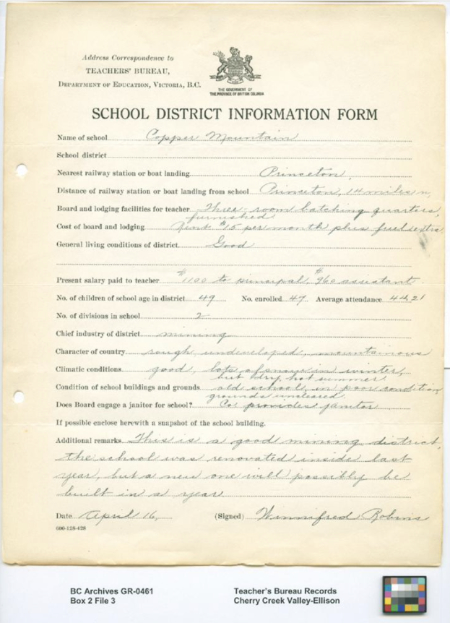 Address Correspondence to
TEACHERS' BUREAU,
DEPARTMENT OF EDUCATION, VICTORIA, B.C.
THE GOVERNMENT OF
THE PROVINCE OF BRITISH COLUMBIA
SCHOOL DISTRICT INFORMATION FORM
Name of school Copper Mountain
School district
Nearest railway station or boat landing Princeton
Distance of railway station or boat landing from school Princeton, 14 miles
Board and lodging facilities for teacher Three-room batching quarters,
furnished
Cost of board and lodging Rent $15 per month plus fuel
General living conditions of district Good
Present salary paid to teacher $1100 to principal, $960 assistant
No. of children of school age in district 49 No. enrolled 47 Average attendance
No. of divisions in school 2
Chief industry of district mining
Character of country rough, undeveloped, mountainous
Climatic conditions good, lots of snow in winter,
but very hot summer
Condition of school buildings and grounds old school, in poor condition,
grounds
Does Board engage a janitor for school? Co. provides janitor
If possible enclose herewith a snapshot of the school building.
Additional remarks This is a good mining district,
the school was renovated inside last
year, but a new one will possibly be
built in a year.
Date April 16, (Signed) Winnifred Robins
BC Archives GR-0461 Teacher's Bureau Records
Box 2 File 3 Cherry Creek Valley-Ellison